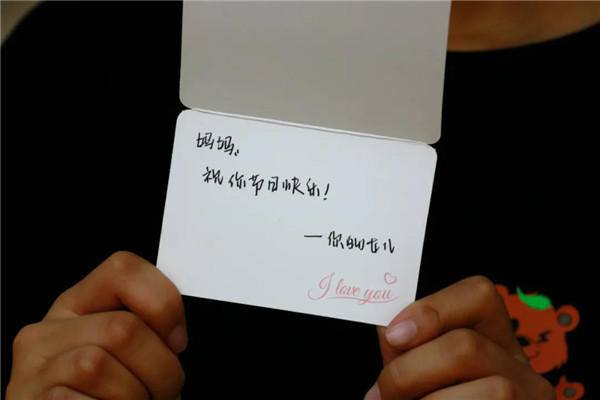 妈妈、
祝你节日快乐!
—你的女儿
I love you